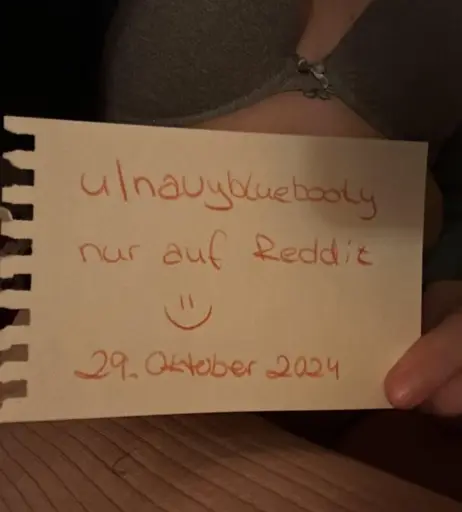 u/navybluebooty
nur auf Reddit
29. Oktober 2024